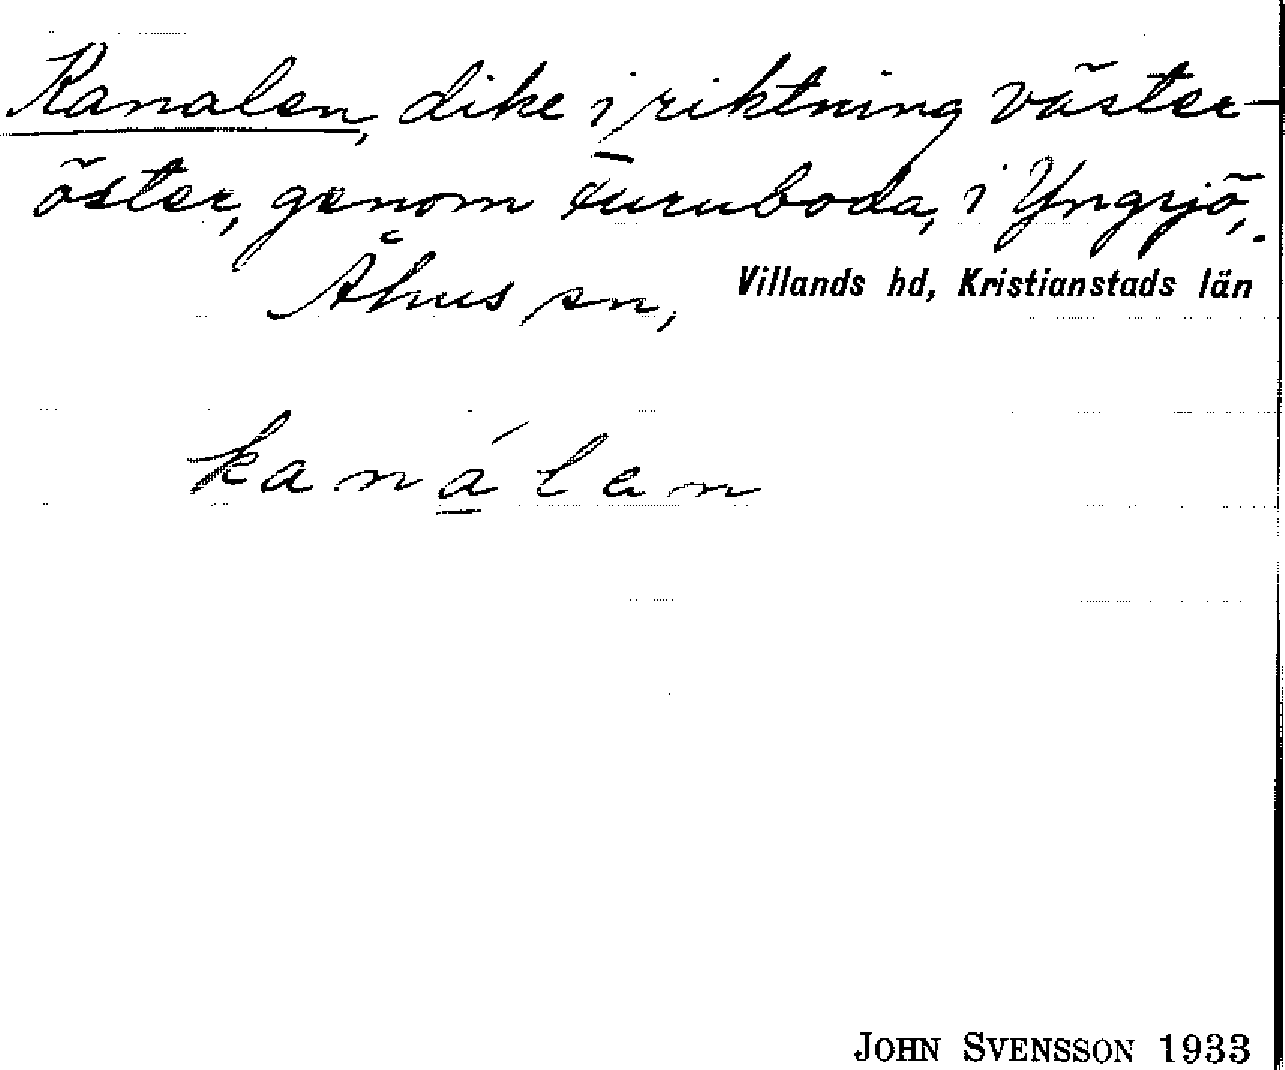 Kanalen, dike i riktning väster-
öster, genom Furuboda, i Yngsjö,
Åhus sn, Villands hd, Kristianstads län
kanálen
JOHN SVENSSON 1933